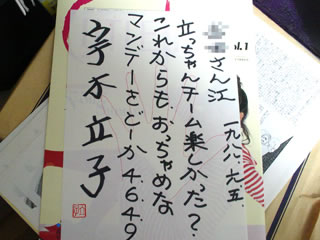 さん江 一九八八.九.五.
立っちゃんチーム楽しかった?
これからもおっちゃめな
マンデーをどーか4.6.4.9
宇木立子
vol.1